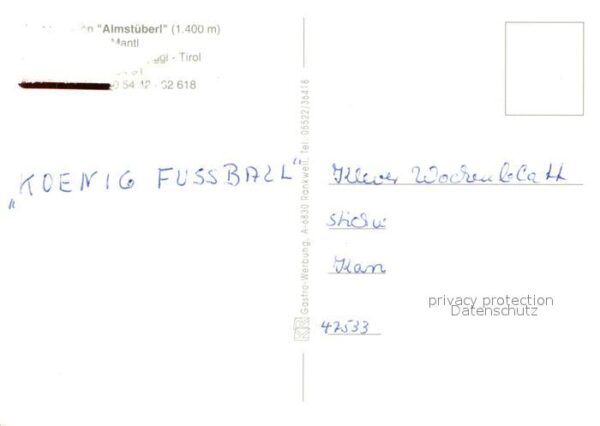 "Almstüberl" (1.400 m)
Mantl
- Tirol
62 618
„KOENIG FUSSBALL"
Gastro-Werbung, A-6830 Rankweil, Tel. 05522/36418
Klever Wochenblatt
47533
privacy protection
Datenschutz